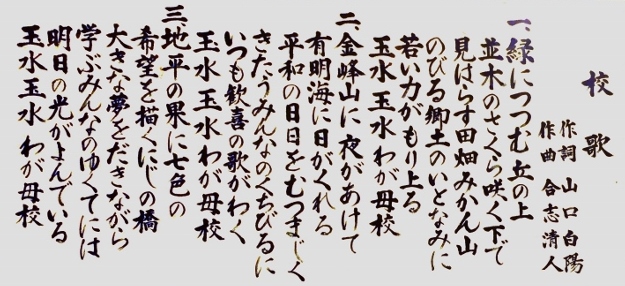 校歌
作詞 山口白陽
作曲 合志清人
一、緑につつむ丘の上
並木のさくら咲く下で
見はらす田畑みかん山
のびる郷土のいとなみに
若い力がもり上る
玉水玉水わが母校
二、金峰山に夜があけて
有明海に日がくれる
平和の日日をむつまじく
きたうみんなのくちびるに
いつも歓喜の歌がわく
玉水玉水わが母校
三、地平の果に七色の
希望を描くにじの橋
大きな夢をだきながら
学ぶみんなのゆくてには
明日の光がよんでいる
玉水玉水わが母校